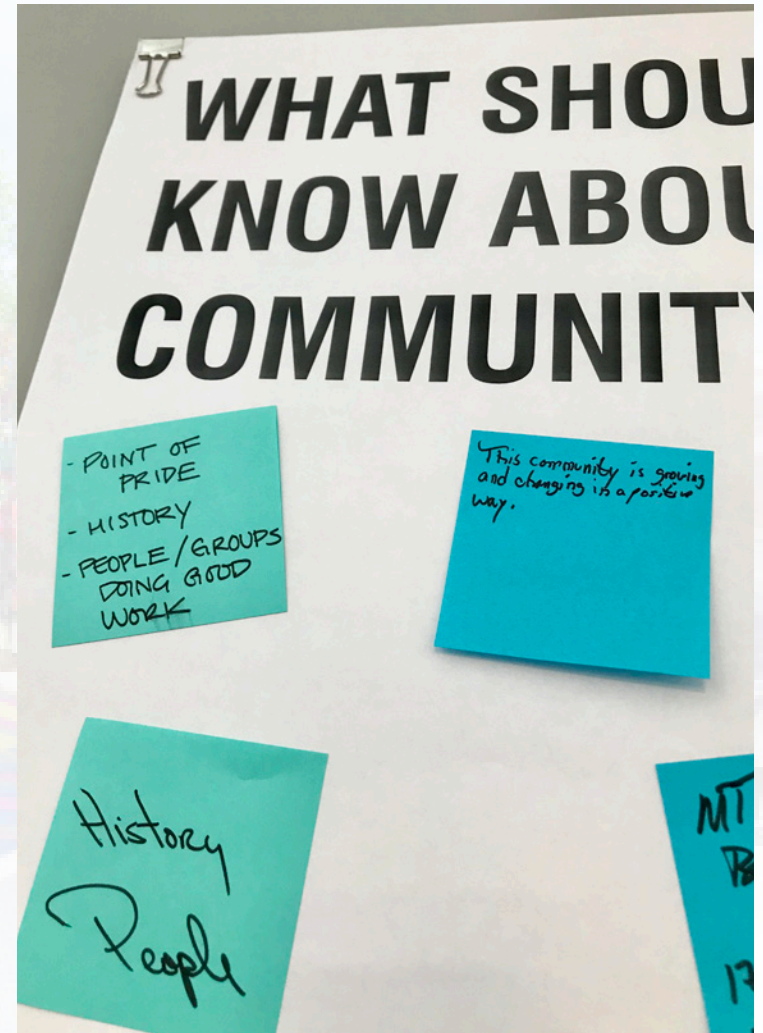 WHAT SHOU
KNOW ABOU
COMMUNITY
- POINT OF
PRIDE
- HISTORY
- PEOPLE / GROUPS
DOING GOOD
WORK
This community is growing
and changing in a positive
way.
History
People
MT
17